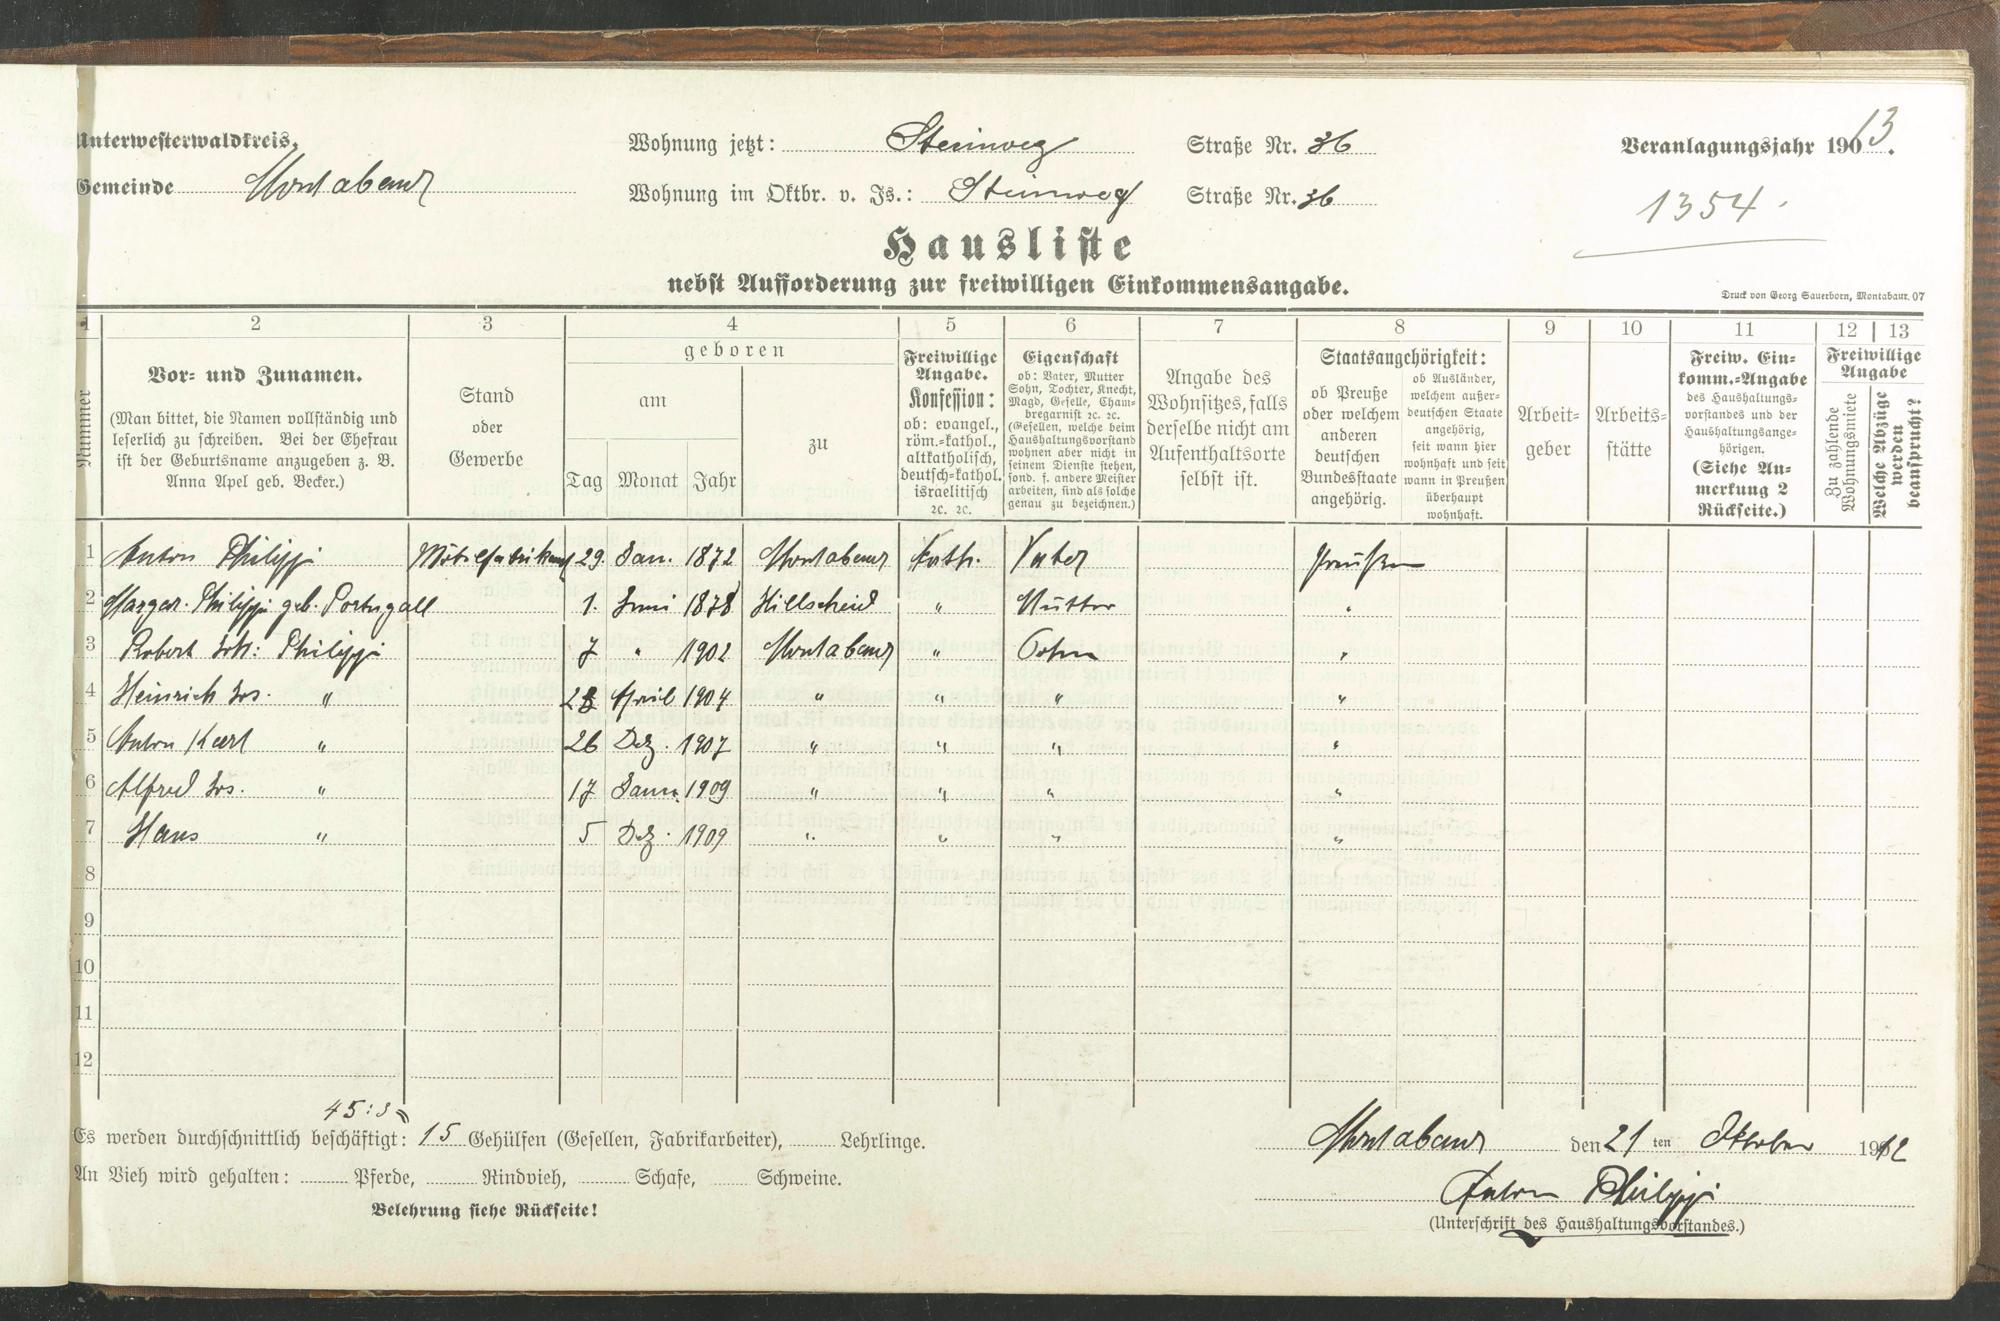 Unterwesterwaldkreis.
Gemeinde Montabaur
Wohnung jetzt: Steinweg Straße Nr. 36
Wohnung im Oktbr. v. Js.: Steinweg Straße Nr. 36
Veranlagungsjahr 1913.
1354.
Hausliste
nebst Aufforderung zur freiwilligen Einkommensangabe.
Druck von Georg Sauerborn, Montabaur. 07
1 2 3 4 5 6 7 8 9 10 11 12 13
Nummer
Vor- und Zunamen.
(Man bittet, die Namen vollständig und
leserlich zu schreiben. Bei der Ehefrau
ist der Geburtsname anzugeben z. B.
Anna Apel geb. Becker.)
Stand
oder
Gewerbe
geboren
am
Tag Monat Jahr
zu
Freiwillige
Angabe.
Konfession:
ob: evangel.,
röm.=kathol.,
altkatholisch,
deutsch=kathol.
israelitisch
ꝛc. ꝛc.
Eigenschaft
ob: Vater, Mutter
Sohn, Tochter, Knecht,
Magd, Geselle, Cham-
bregarnist ꝛc. ꝛc.
(Gesellen, welche beim
Haushaltungsvorstand
wohnen aber nicht in
seinem Dienste stehen,
sond. f. andere Meister
arbeiten, sind als solche
genau zu bezeichnen.)
Angabe des
Wohnsitzes, falls
derselbe nicht am
Aufenthaltsorte
selbst ist.
Staatsangehörigkeit:
ob Preuße
oder welchem
anderen
deutschen
Bundesstaate
angehörig.
ob Ausländer,
welchem außer-
deutschen Staate
angehörig,
seit wann hier
wohnhaft und seit
wann in Preußen
überhaupt
wohnhaft.
Arbeit-
geber
Arbeits-
stätte
Freiw. Ein-
komm.=Angabe
des Haushaltungs-
vorstandes und der
Haushaltungsange-
hörigen.
(Siehe An-
merkung 2
Rückseite.)
Freiwillige
Angabe
Zu zahlende
Wohnungsmiete
Welche Abzüge
werden
beansprucht?
1 Anton Philippi Möbelfabrikant 29. Jan. 1872 Montabaur Kath. Vater Preußen
2 Margar. Philippi geb. Portugall 1. Juni 1878 Hillscheid " Mutter "
3 Robert Joh: Philippi 7 " 1902 Montabaur " Sohn "
4 Heinrich Jos. " April 1904 " " " "
5 Anton Karl " 26 Dez. 1907 " " " "
6 Alfred Jos. " 17 Janu. 1909 " " " "
7 Hans " 5 Dez. 1909 " " " "
8
9
10
11
12
45:3
Es werden durchschnittlich beschäftigt: 15 Gehülfen (Gesellen, Fabrikarbeiter), Lehrlinge.
An Vieh wird gehalten: Pferde, Rindvieh, Schafe, Schweine.
Belehrung siehe Rückseite!
Montabaur den 21 ten Oktober 1912
Anton Philippi
(Unterschrift des Haushaltungsvorstandes.)